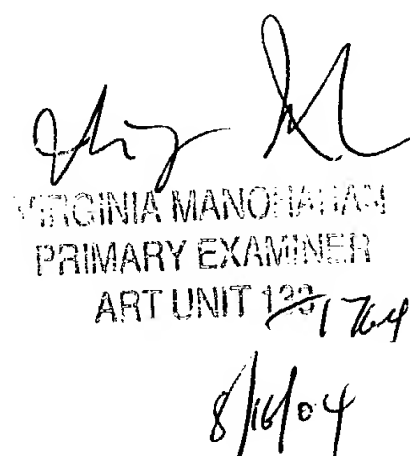 VIRGINIA MANOHARAN
PRIMARY EXAMINER
ART UNIT 1764
8/16/04